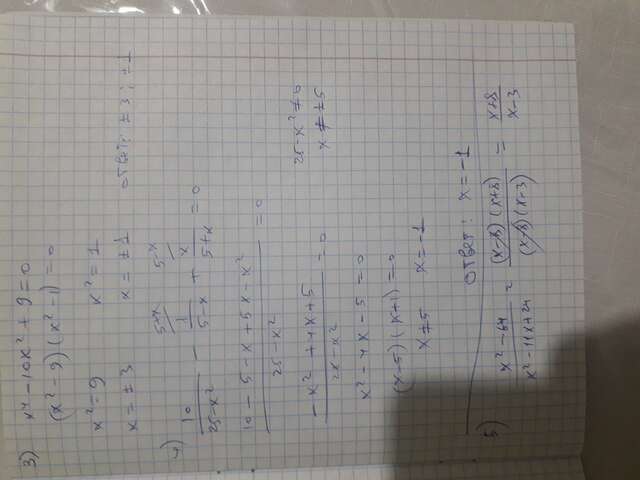 3) x⁴ - 10x² + 9 = 0
(x² - 9)(x² - 1) = 0
x² = 9 x² = 1
x = ±3 x = ±1 ответ: ±3; ±1
4) 10/(25-x²) - 1/(5-x) (5+x + x/(5+x) (5-x = 0
(10 - 5 - x + 5x - x²)/(25 - x²) = 0
(-x² + 4x + 5)/(25 - x²) = 0 25 - x² ≠ 0
x ≠ ±5
x² - 4x - 5 = 0
(x-5)(x+1) = 0
x ≠ 5 x = -1
ответ: x = -1
5) (x² - 64)/(x² - 11x + 24) = (x-8)(x+8)/(x-8)(x-3) = (x+8)/(x-3)